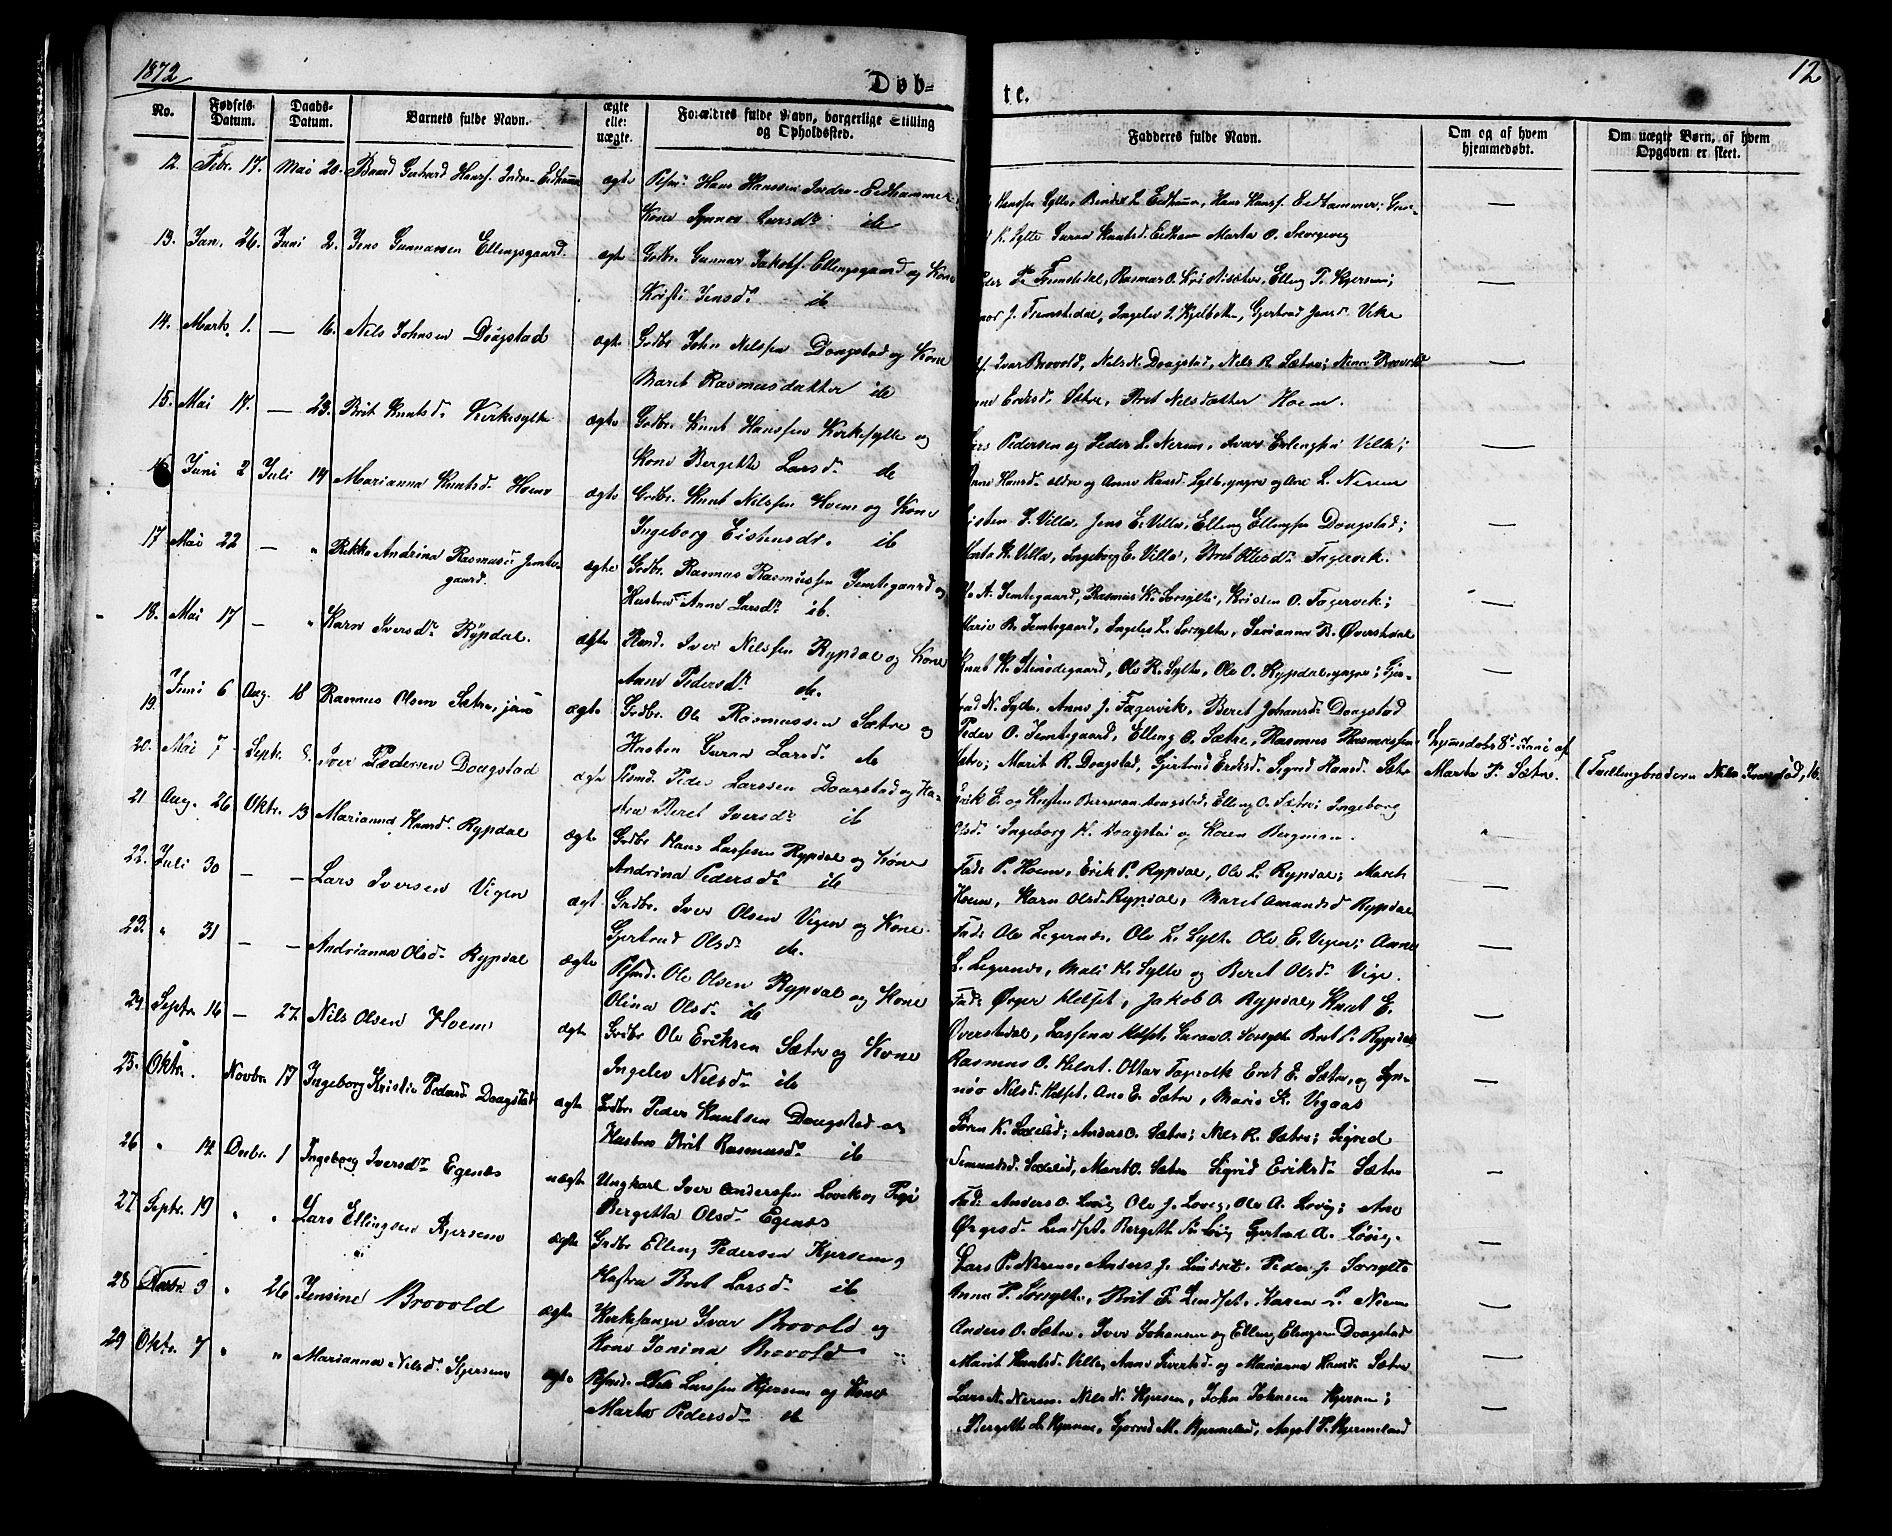 1872
Døb-
te.
12
No.
Fødsels-
Datum.
Daabs-
Datum.
Barnets fulde Navn.
ægte
elle:
uægte.
Forældres fulde Navn, borgerlige Stilling
og Opholdssted.
Fadderes fulde Navn.
Om og af hvem
hjemmedøbt.
Om uægte Børn, af hvem
Opgaven er skeet.
12. Febr. 17. Mai 20. Baard Gerhard Hanss. Indre-Eidhammer ægte Hans Hanssen Indre-Eidhammer
Kone Synnev Larsdr ib
Hanssen Sylte, Bendix L. Eidham, Hans Hanss. Eidhammer;
K. Sylte Guran Knutsd. Eidham Marta O. Skorgevig
13. Jan. 26. Juni 2. Jens Gunnarsen Ellingsgaard. ægte Grdbr. Gunnar Jakobs. Ellingsgaard og Kone
Kristi Jensdr ib
P. Fremstedal, Rasmus O. Elling P. Kjersem;
J. Fremstedal, Ingelev Gjertrud Jensd. Vike
14. Marts 1. — 16. Nils Johnsen Doagstad ægte Grdbr. John Nilssen Doagstad og Kone
Marit Rasmusdatter ib
Ivar Brovold, Nils N. Doagstad, Nils R. Sætre; Brovold
Eriksd. Sætre, Bret Nilsdatter Hoem.
15. Mai 14. — 23. Brit Knutsd. Kirkesylte ægte Grdbr. Knut Hanssen Kirkesylte og
Kone Bergitte Larsd. do
Pedersen og Peder L. Nerem, Ivar Erlingsen Villa;
Hansd. ældre og Anne Hansd. Sylte yngre og Ane L. Nerem
16 Juni 2 Juli 14 Marianna Knutsd. Hoem ægte Grdbr. Knut Nilssen Hoem og Kone
Ingeborg ib
Villa, Jens E. Villa, Elling Ellingsen Doagstad;
Villa, Ingeborg E. Villa, Bret Fagervik.
17 Mai 22 — " Rikke Andrina Rasmusd. Jemte-
gaard. ægte Grdbr. Rasmus Rasmussen Jemtegaard og
Hustru Anne Larsd. ib.
Jemtegaard, Rasmus K. Sorsylte, Kristen O. Fagervik;
Marie R. Jemtegaard, Ingelev L. Sorsylte, Serianna R. Øverstedal
18. Mai 17 — " Karn Iversdr Rypdal. ægte Iver Nilssen Rypdal og Kone
Anne Pedersdr do.
Knut K. Stenødegaard, Ole K. Sylte, Ole O. Rypdal yngre; Gjer-
trud N. Sylte, Anne J. Fagervik, Beret Johansd. Doagstad
19. Juni 6 Aug. 18 Rasmus Olsen Sætre, ægte Grdbr. Ole Rasmussen Sætre og
Hustru Guran Larsd. do
Peder O. Jemtegaard, Elling O. Sætre, Rasmus Rasmussen
Sætre; Marit R. Doagstad, Gjertrud Eriksd. Sigrid Hansd. Sætre
Hjemmedøbt 8de Juni af
Marta P. Sætre.
20. Mai 7 Septr. 8. Iver Pedersen Doagstad ægte Plsmd. Peder Larssen Doagstad og Hu-
stru Beret Iversdr ib
Erik E. og Kristen Bergman Doagstad, Elling O. Sætre; Ingeborg
Olsd. Ingeborg K. Doagstad og Karen Bergman.
(Tvillingbroderen Nils
21 Aug. 26 Oktr. 13 Marianna Hansd. Rypdal ægte Grdbr Hans Larssen Rypdal og Kone
Andrina Pedersd. ib
Fad: P. Hoem, Erik P. Rypdal, Ole L. Rypdal; Marit
Hoem, Karn Olsd. Rypdal, Maret Amundsd Rypdal
22. Juli 30 — — Lars Iversen Vigen ægt Grdbr. Iver Olsen Vigen og Kone
Gjertrud Olsd. do.
Fad: Ole Legernes, Ole L. Sylte Ole E. Vigen; Anne
L. Legernes, Mali H. Sylte og Beret Olsd. Vige.
23. " 31 — — Andrianna Olsd. Rypdal ægte Plsmd. Ole Olsen Rypdal og Kone
Olina Olsd. ib
Fad: Ørger Helset, Jakob O. Rypdal, Knut E.
Øverstedal, Lassena Helset, Guran O. Sorsylte Bret P. Rypdal
24. Septr 16 — 27. Nils Olsen Hoem ægte Grdbr Ole Eriksen Sætre og Kone
Ingelev Nilsd. ib
Rasmus O. Helset. Ottar Erik E. Sætre, og Syn-
nøv Nilsd. Helset, Ane E. Sætre, Marie K. Vigaas
25. Oktr. Novbr 17 Ingeborg Kristine Pedersd Doagstad ægte Grdbr Peder Knutsen Doagstad og
Hustru Brit Rasmusd. ib
Søren K. Sæteild; Anders O. Sætre; Nils R. Sætre; Sigrid
Maret O. Sætre Sigrid Eriksd. Sætre
26 " 14 Decbr. 1 Ingeborg Iversdr Egenæs uægte Ungkarl Iver Anderssen Løvik og Pige
Bergitta Olsd. Egenæs
Fad: Anders O. Løvig Ole J. Løvig, Ole A. Løvig; Ane
Ørgesd. Lindset. Bergitte Løvig Gjertrud A. Løvig.
27. Septr. 19 " " Lars Ellingsen Kjersem ægte Grdbr Elling Pedersen Kjersem og
Hustru Bret Larsd. ib
Lars P. Nerem, Anders J. Lindset. Peder J. Sorsylte
Anne P. Sorsylte, Brit F. Lindset. Karen L. Nerem
28 9 " 26 Jensine Brovold ægte Kirkesanger Ivar Brovold og
Kone Jonina Brovold
Anders O. Sætre, Iver Johansen og Elling Elingsen Doagstad
Marit Knutsd. Villa, Anne Sivertsd. og Marianna Hansd. Sætre
29 Oktr. 7 " " Marianna Nilsd. Kjersem ægte Plsmd. Nils Larssen Kjersem og Kone
Marte Pedersd. ib
Lars N. Nerem. Nils N. Kjersem, John Johnsen Kjersem;
Bergitte L. Kjersem, M. Kjerseland, P. Kjerseland